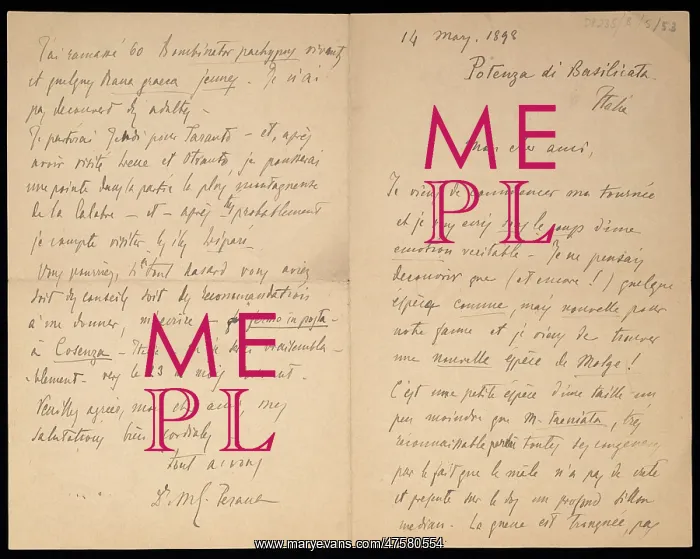 14 May. 1898
Potenza di Basilicata.
Italie
Mon cher ami,
Je viens de commencer ma tournée
et je vous écris sous le coup d'une
emotion veritable - Je ne pensais
decouvrir que (et encore !) quelque
espèce connue, mais nouvelle pour
notre faune et je viens de trouver
une nouvelle espèce de Molge !
C'est une petite espèce d'une taille un
peu moindre que M. Taeniata, très
reconnaissable parmi toutes ses congeneres
par le fait que le mâle n'a pas de crête
et presente sur le dos un profond sillon
median. La queue est tronquée, pas
J'ai ramassé 60 Bombinator pachypus vivants
et quelques Rana graeca jeunes. Je n'ai
pas decouvert des adultes -
Je partirai pour Taranto - et, après
avoir visité Lecce et Otranto, je pousserai
une pointe dans la partie la plus montagneuse
de la Calabre - et - après très probablement
je compte visiter les îles Lipari -
Vous pourriez, si tout hasard vous aviez
soit des conseils soit des recommandations
à me donner, m'ecrire - fermo in posta -
à Cosenza - vraisembla-
-blement - vers le 23
Veuillez agréer, mon cher ami, mes
salutations bien cordiales
tout à vous
Dr. M. G. Peracca
ME
PL
ME
PL
www.maryevans.com/47580554